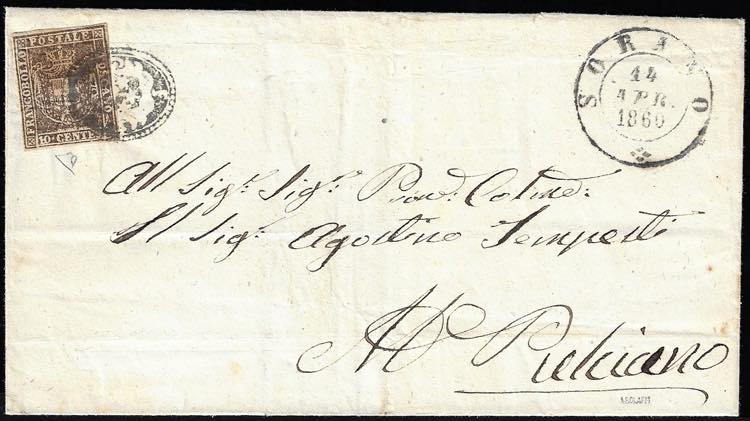 FRANCOBOLLO
POSTALE
TOSCANO
10 CENT
SORANO
14
APR.
1860
All Sig.r Sig.r Pron.
Il Sig.r Agostino Tempesti
M. Pulciano